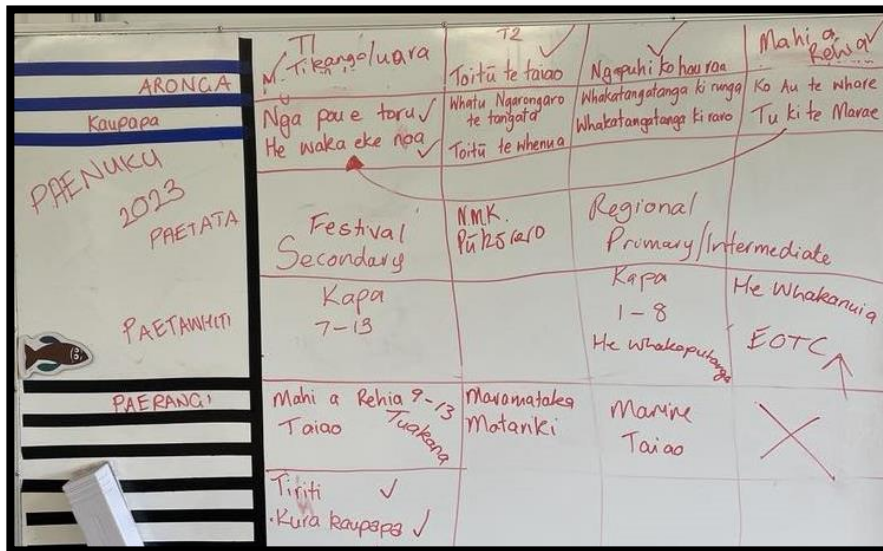 T1
Tikanga/uara
T2
Toitū te taiao
Ngapuhi Ko hau raa
Mahi a Rewa
ARONGA
Kaupapa
Nga pou e toru
He waka eke noa
Whatu Ngarongaro
te tangata
Toitū te whenua
Whakatangatanga ki runga
Whakatangatanga ki raro
Ko Au te whare
Tu ki te Marae
PAENUKU
2023
PAETATA
Festival
Secondary
N.M.K.
Pūkōrero
Regional
Primary/Intermediate
PAETAWHITI
Kapa
7-13
Kapa
1-8
He whakaputanga
He Whakanuia
EOTC
PAERANGI
Mahi a Rehia 9-13
Taiao Tuakana
Maramataka
Matariki
Marine
Taiao
Tiriti
Kura kaupapa